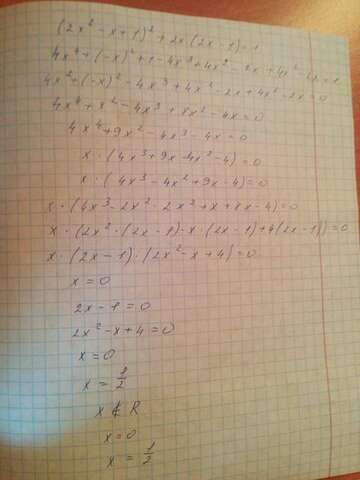 (2x² - x + 1)² + 2x (2x - 1) = 1
4x⁴ + (-x)² + 1 - 4x³ + 4x² - 2x + 4x² - 2x = 1
4x² + (-x)² - 4x³ + 4x² - 2x + 4x² - 2x = 0
4x⁴ + x² - 4x³ + 8x² - 4x = 0
4x⁴ + 9x² - 4x³ - 4x = 0
x · (4x³ + 9x - 4x² - 4) = 0
x · (4x³ - 4x² + 9x - 4) = 0
x · (4x³ - 2x² - 2x² + x + 8x - 4) = 0
x · (2x² · (2x - 1) - x · (2x - 1) + 4(2x - 1)) = 0
x · (2x - 1) · (2x² - x + 4) = 0
x = 0
2x - 1 = 0
2x² - x + 4 = 0
x = 0
x = 1/2
x ∉ R
x = 0
x = 1/2